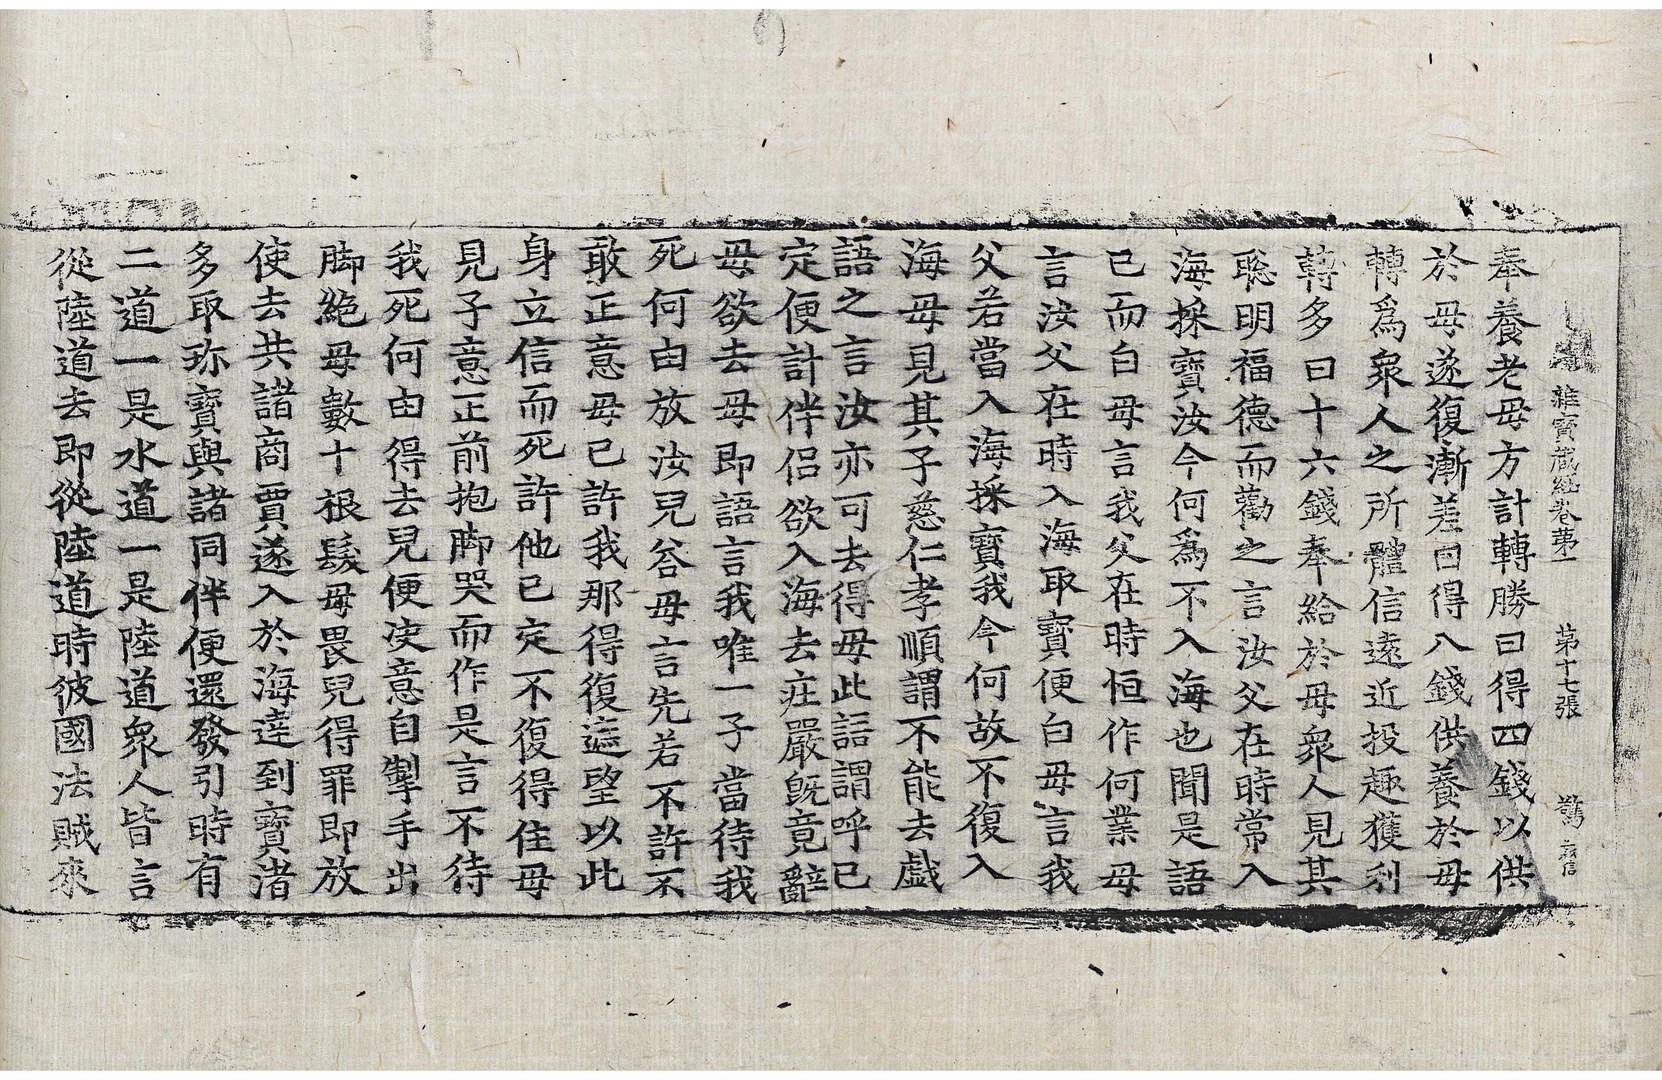 雜寶藏經卷第一　第十七張　驚
奉養老母方計轉勝日得四錢以供
於母遂復漸差日得八錢供養於母
轉爲衆人之所體信遠近投趣獲利
轉多日十六錢奉給於母衆人見其
聡明福德而勸之言汝父在時常入
海採寶汝今何爲不入海也聞是語
已而白母言我父在時恒作何業母
言汝父在時入海取寶便白母言我
父若當入海採寶我今何故不復入
海母見其子慈仁孝順謂不能去戱
語之言汝亦可去得母此語謂呼已
定便計伴侣欲入海去庄嚴旣竟辭
母欲去母即語言我唯一子當待我
死何由放汝兒答母言先若不許不
敢正意母已許我那得復遮望以此
身立信而死許他已定不復得住母
見子意正前抱脚哭而作是言不待
我死何由得去兒便决意自掣手出
脚絶母數十根髮母畏兒得罪即放
使去共諸商賈遂入於海達到寶渚
多取珎寶與諸同伴便還發引時有
二道一是水道一是陸道衆人皆言
從陸道去即從陸道時彼國法賊來